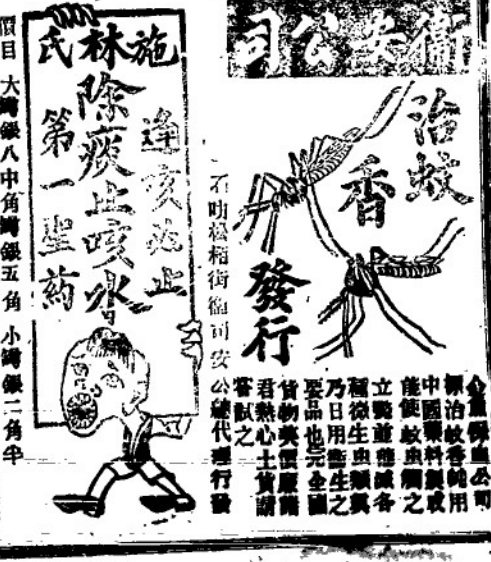 衞安公司
治蚊香
發行
標治蚊香純用
中國藥料製成
能使蚊虫觸之
立斃並滅各
種微生虫類實
乃日用衞生之
要品也完全國
貨物美價廉諸
君熱心土貨請
嘗試之
石叻松柏街衞司安公代理行發
施林氏
除痰止咳水
逢咳必止
第一聖藥
價目 大罇銀八中角罇銀五角 小罇銀二角半